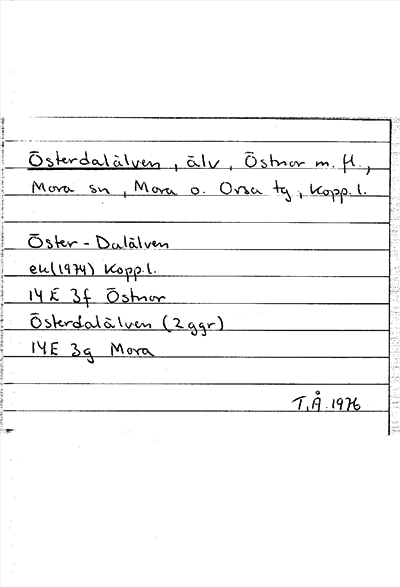 Österdalälven, älv, Östnor m. fl.,
Mora sn, Mora o. Orsa tg, Kopp.l.
Öster-Dalälven
ek(1974) Kopp.l.
14E 3f Östnor
Österdalälven (2ggr)
14E 3g Mora
T.Å. 1976